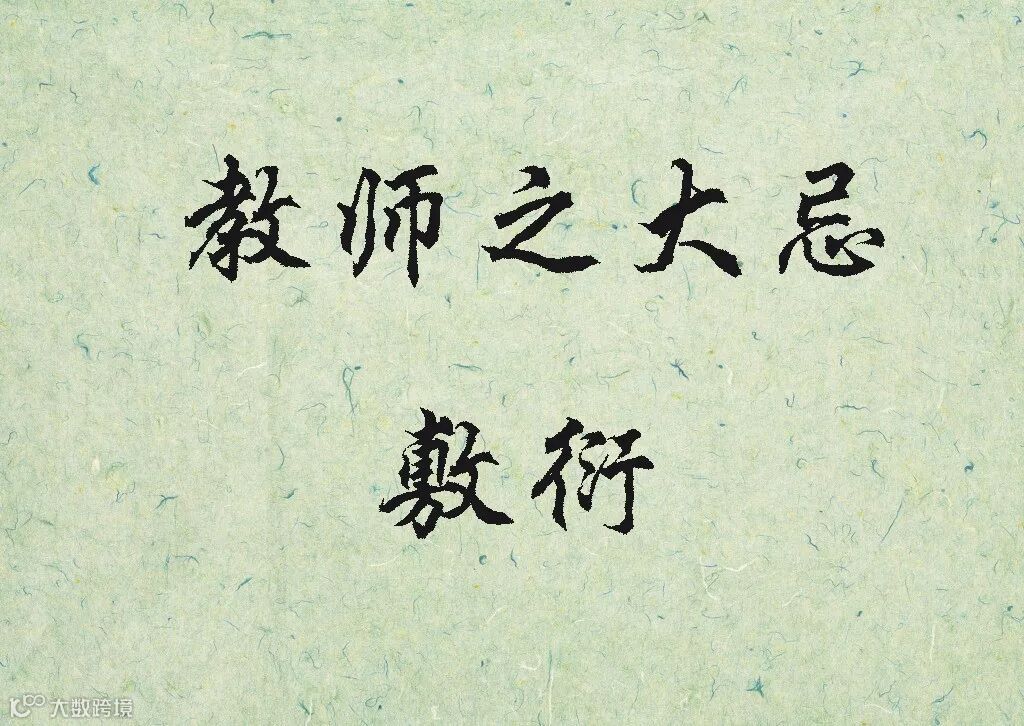 教师之大忌
敷衍
大数跨境